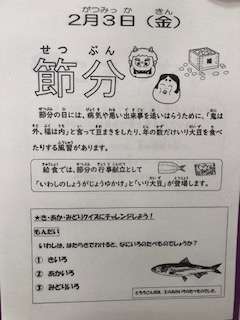 がつみっか きん
2月3日(金)
せつ ぶん
節分
節分の日には、病気や悪い出来事を追いはらうために、「鬼は
外、福は内」と言って豆まきをしたり、年の数だけいり大豆を食べ
たりする風習があります。
給食では、節分の行事献立として
「いわしのしょうがじょうゆかけ」と「いり大豆」が登場します。
★き・あか・みどりクイズにチャレンジしよう！
もんだい
いわしは、はたらきでわけると、なにいろのたべものでしょうか？
① きいろ
② あかいろ
③ みどりいろ